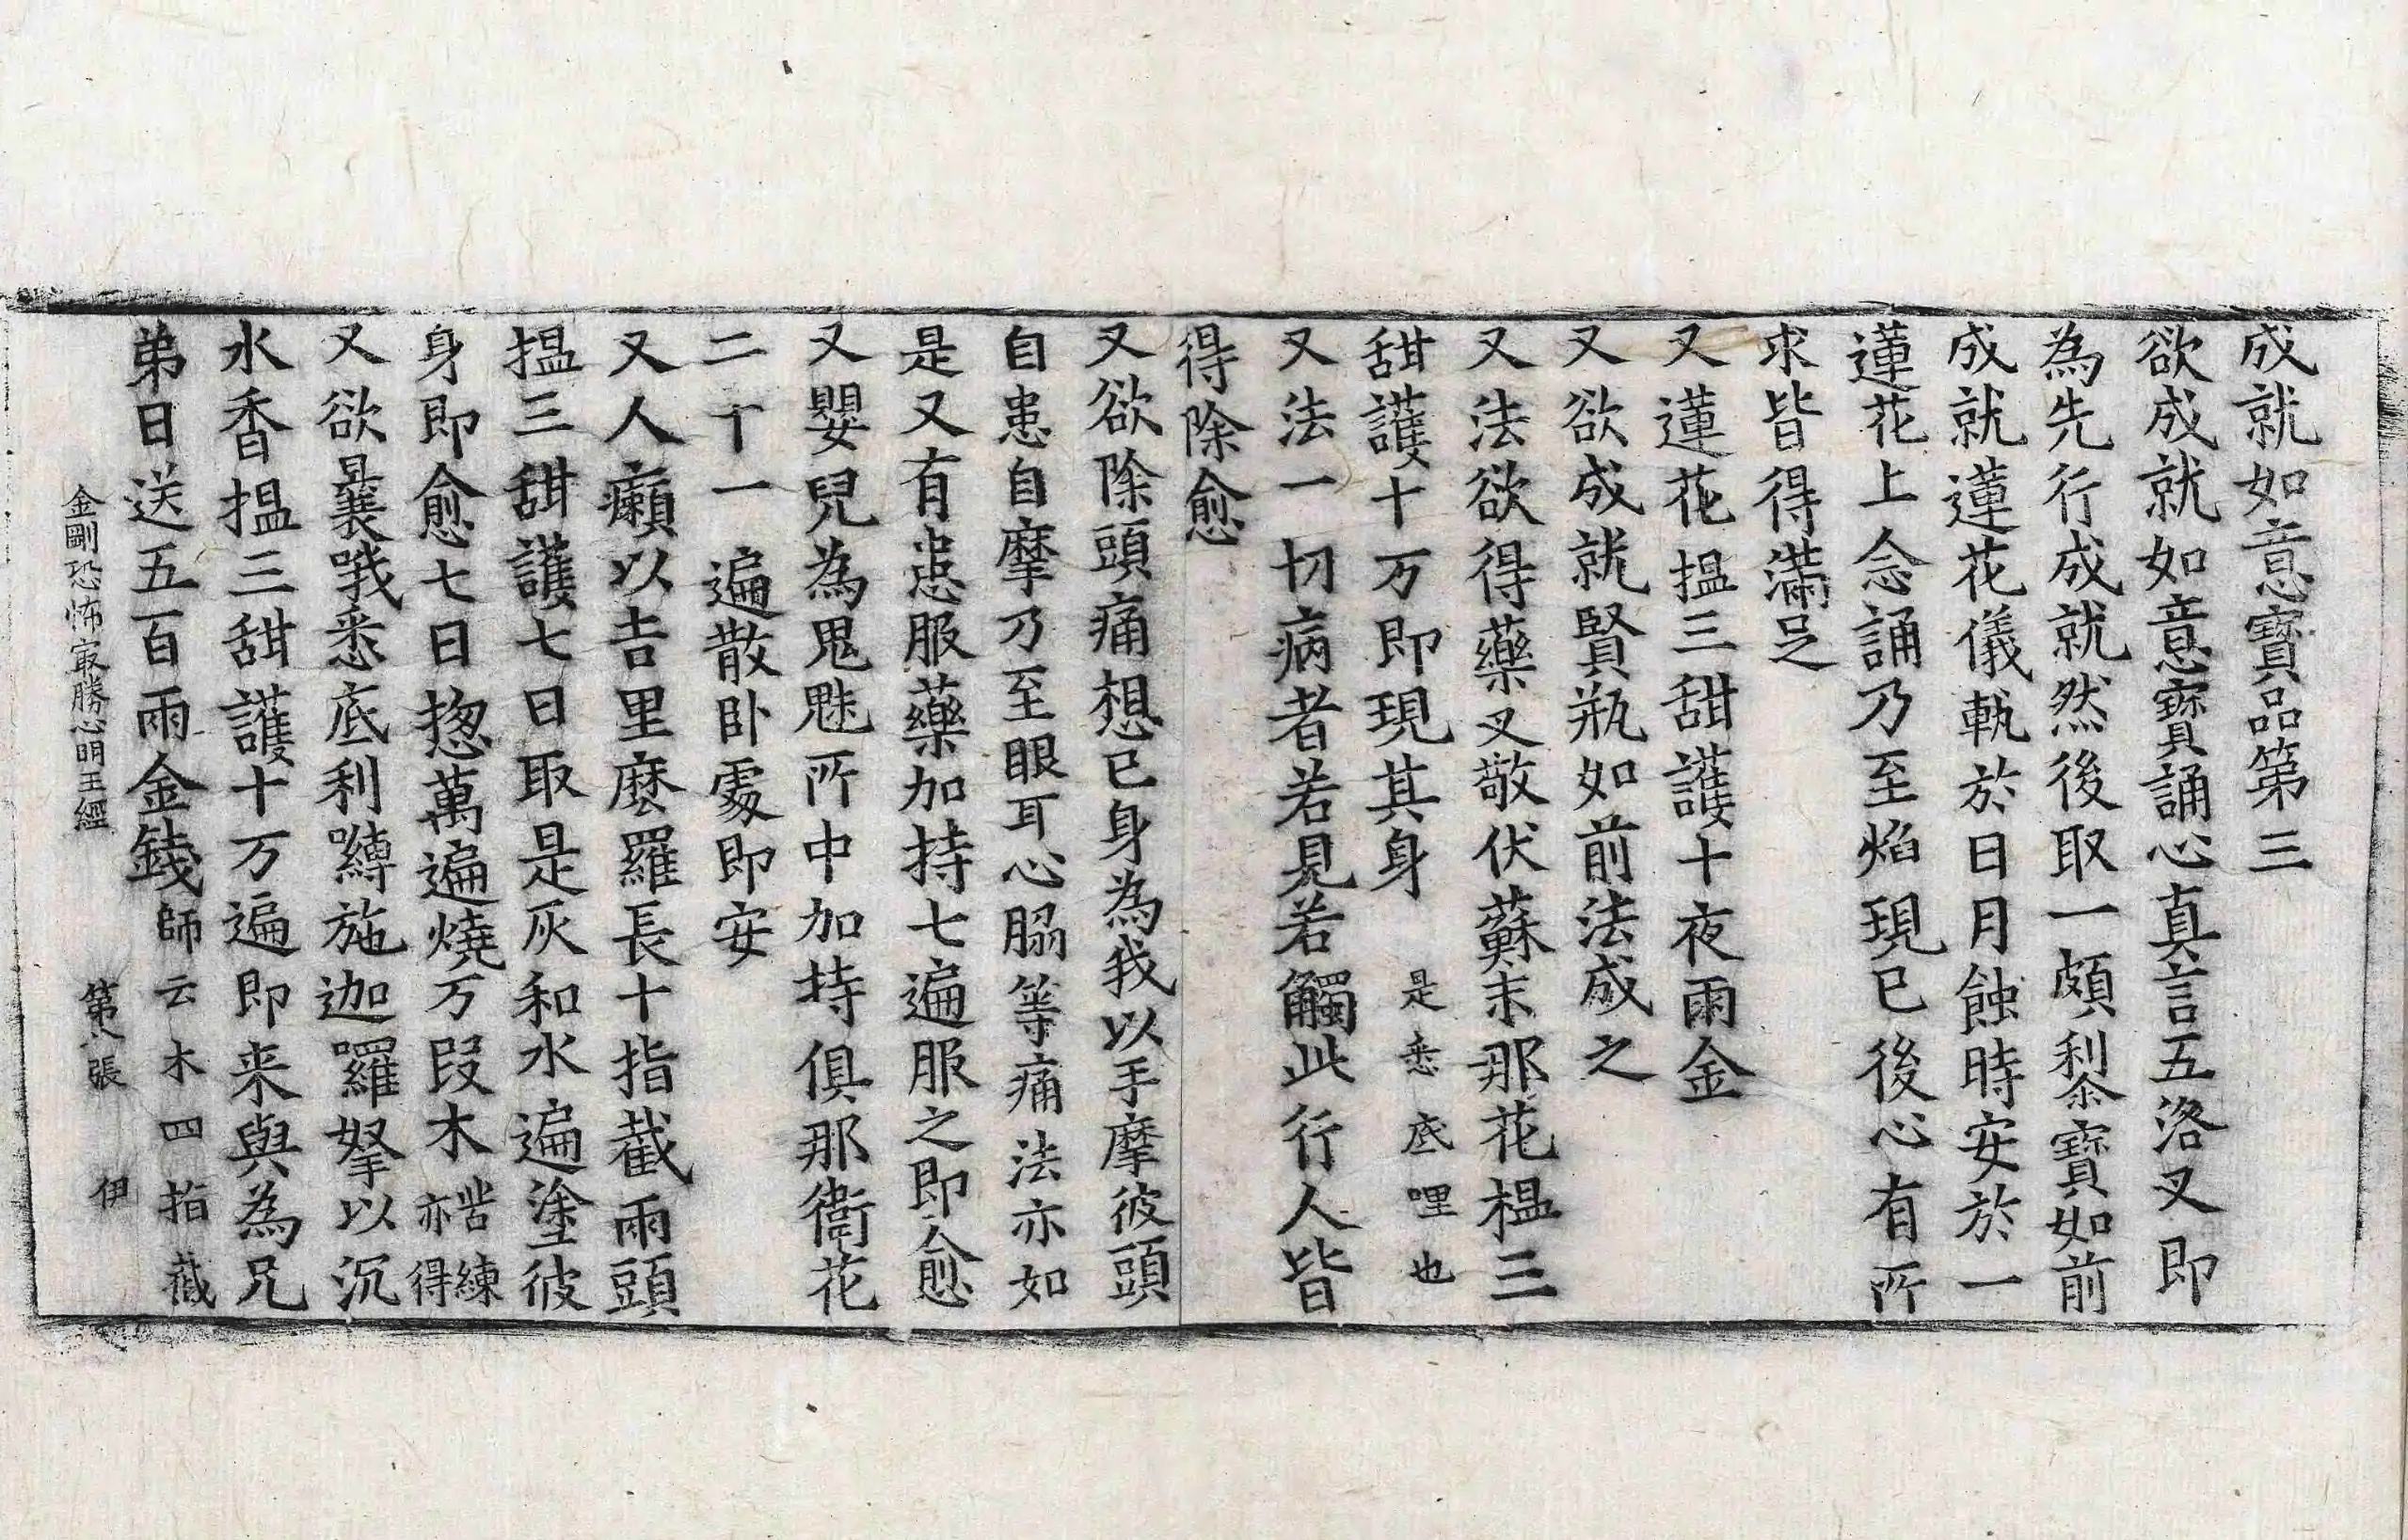 成就如意寶品第三
欲成就如意寶誦心真言五洛叉即
為先行成就然後取一頗𥠖寶如前
成就蓮花儀軌於日月蝕時安於一
蓮花上念誦乃至焰現已後心有所
求皆得滿足
又蓮花搵三甜護十夜雨金
又欲成就賢瓶如前法成之
又法欲得藥叉敬伏蘇末那花榅三
甜護十万即現其身 是悉底哩也
又法一切病者若見若觸此行人皆
得除愈
又欲除頭痛想已身為我以手摩彼頭
自患自摩乃至眼耳心𦛗等痛法亦如
是又有患服藥加持七遍服之即愈
又嬰兒為鬼魅所中加持俱那衞花
二十一遍散卧處即安
又人癩以吉里麼羅長十指截兩頭
搵三甜護七日取是灰和水遍塗彼
身即愈七日揔萬遍燒万段木 苦練亦得
又欲曩哦悉底利嚩施迦囉拏以沉
水香搵三甜護十万遍即来與為兄
弟日送五百兩金錢 師云木四指截
金剛恐怖冣勝心明王經 第八張 伊